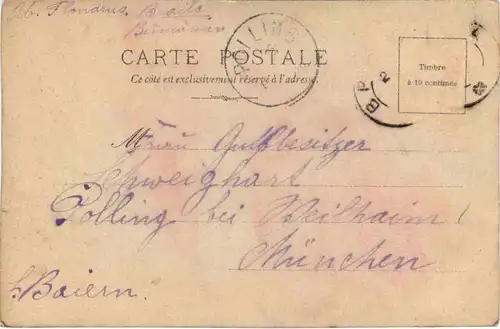 Flondrus, Braila
CARTE POSTALE
Ce côté est exclusivement réservé à l'adresse.
POLLING
Timbre
à 10 centimes
2
Frau Gutsbesitzer
Schweighart
Polling bei Weilhaim /
München
Baiern.